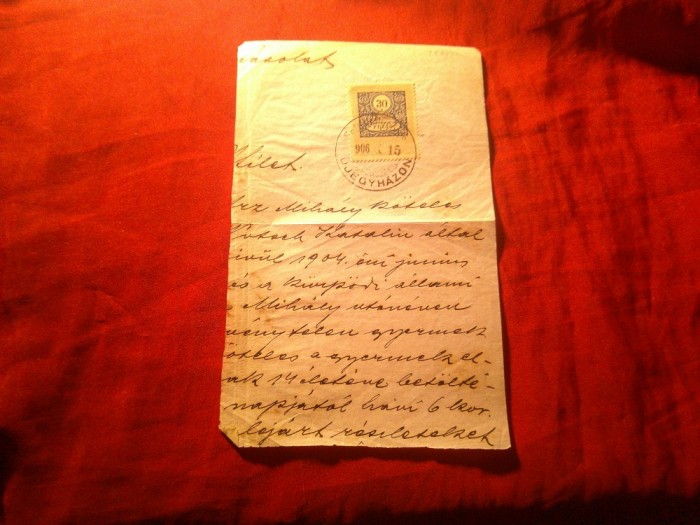 ásolat
30
906 X 15
ÚJEGYHÁZON
ítélet.
Mihály köteles
Katalin által
ívül 1904. évi június
és a kürpödi állami
Mihály utónéven
vénytelen gyermek
öteles a gyermek el-
ak 14 életéve betölté-
napjától havi 6 kor.
lejárt részleteket